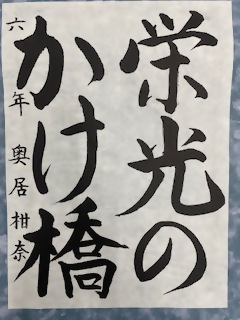 栄光の
かけ橋
六年 奥居柑奈